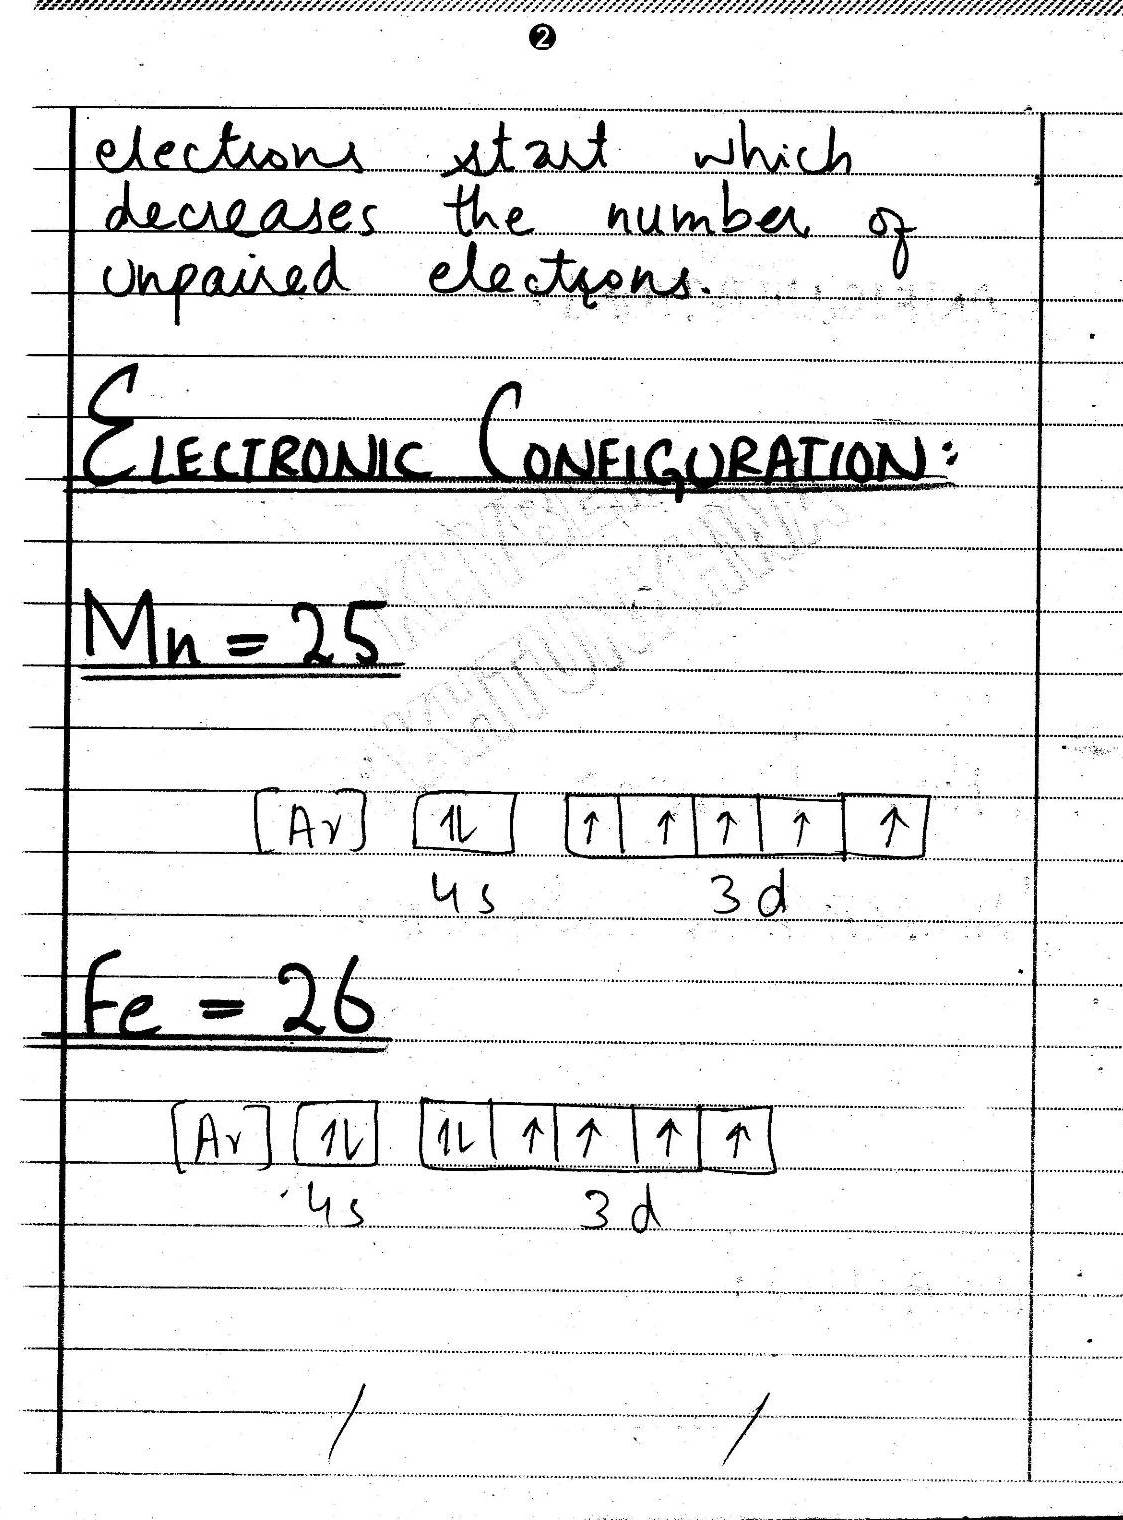 2
elections start which
decreases the number of
unpaired electrons.
ELECTRONIC CONFIGURATION:
Mn = 25
[Ar] ↑↓ ↑ ↑ ↑ ↑ ↑
4s 3d
Fe = 26
[Ar] ↑↓ ↑↓ ↑ ↑ ↑ ↑
4s 3d